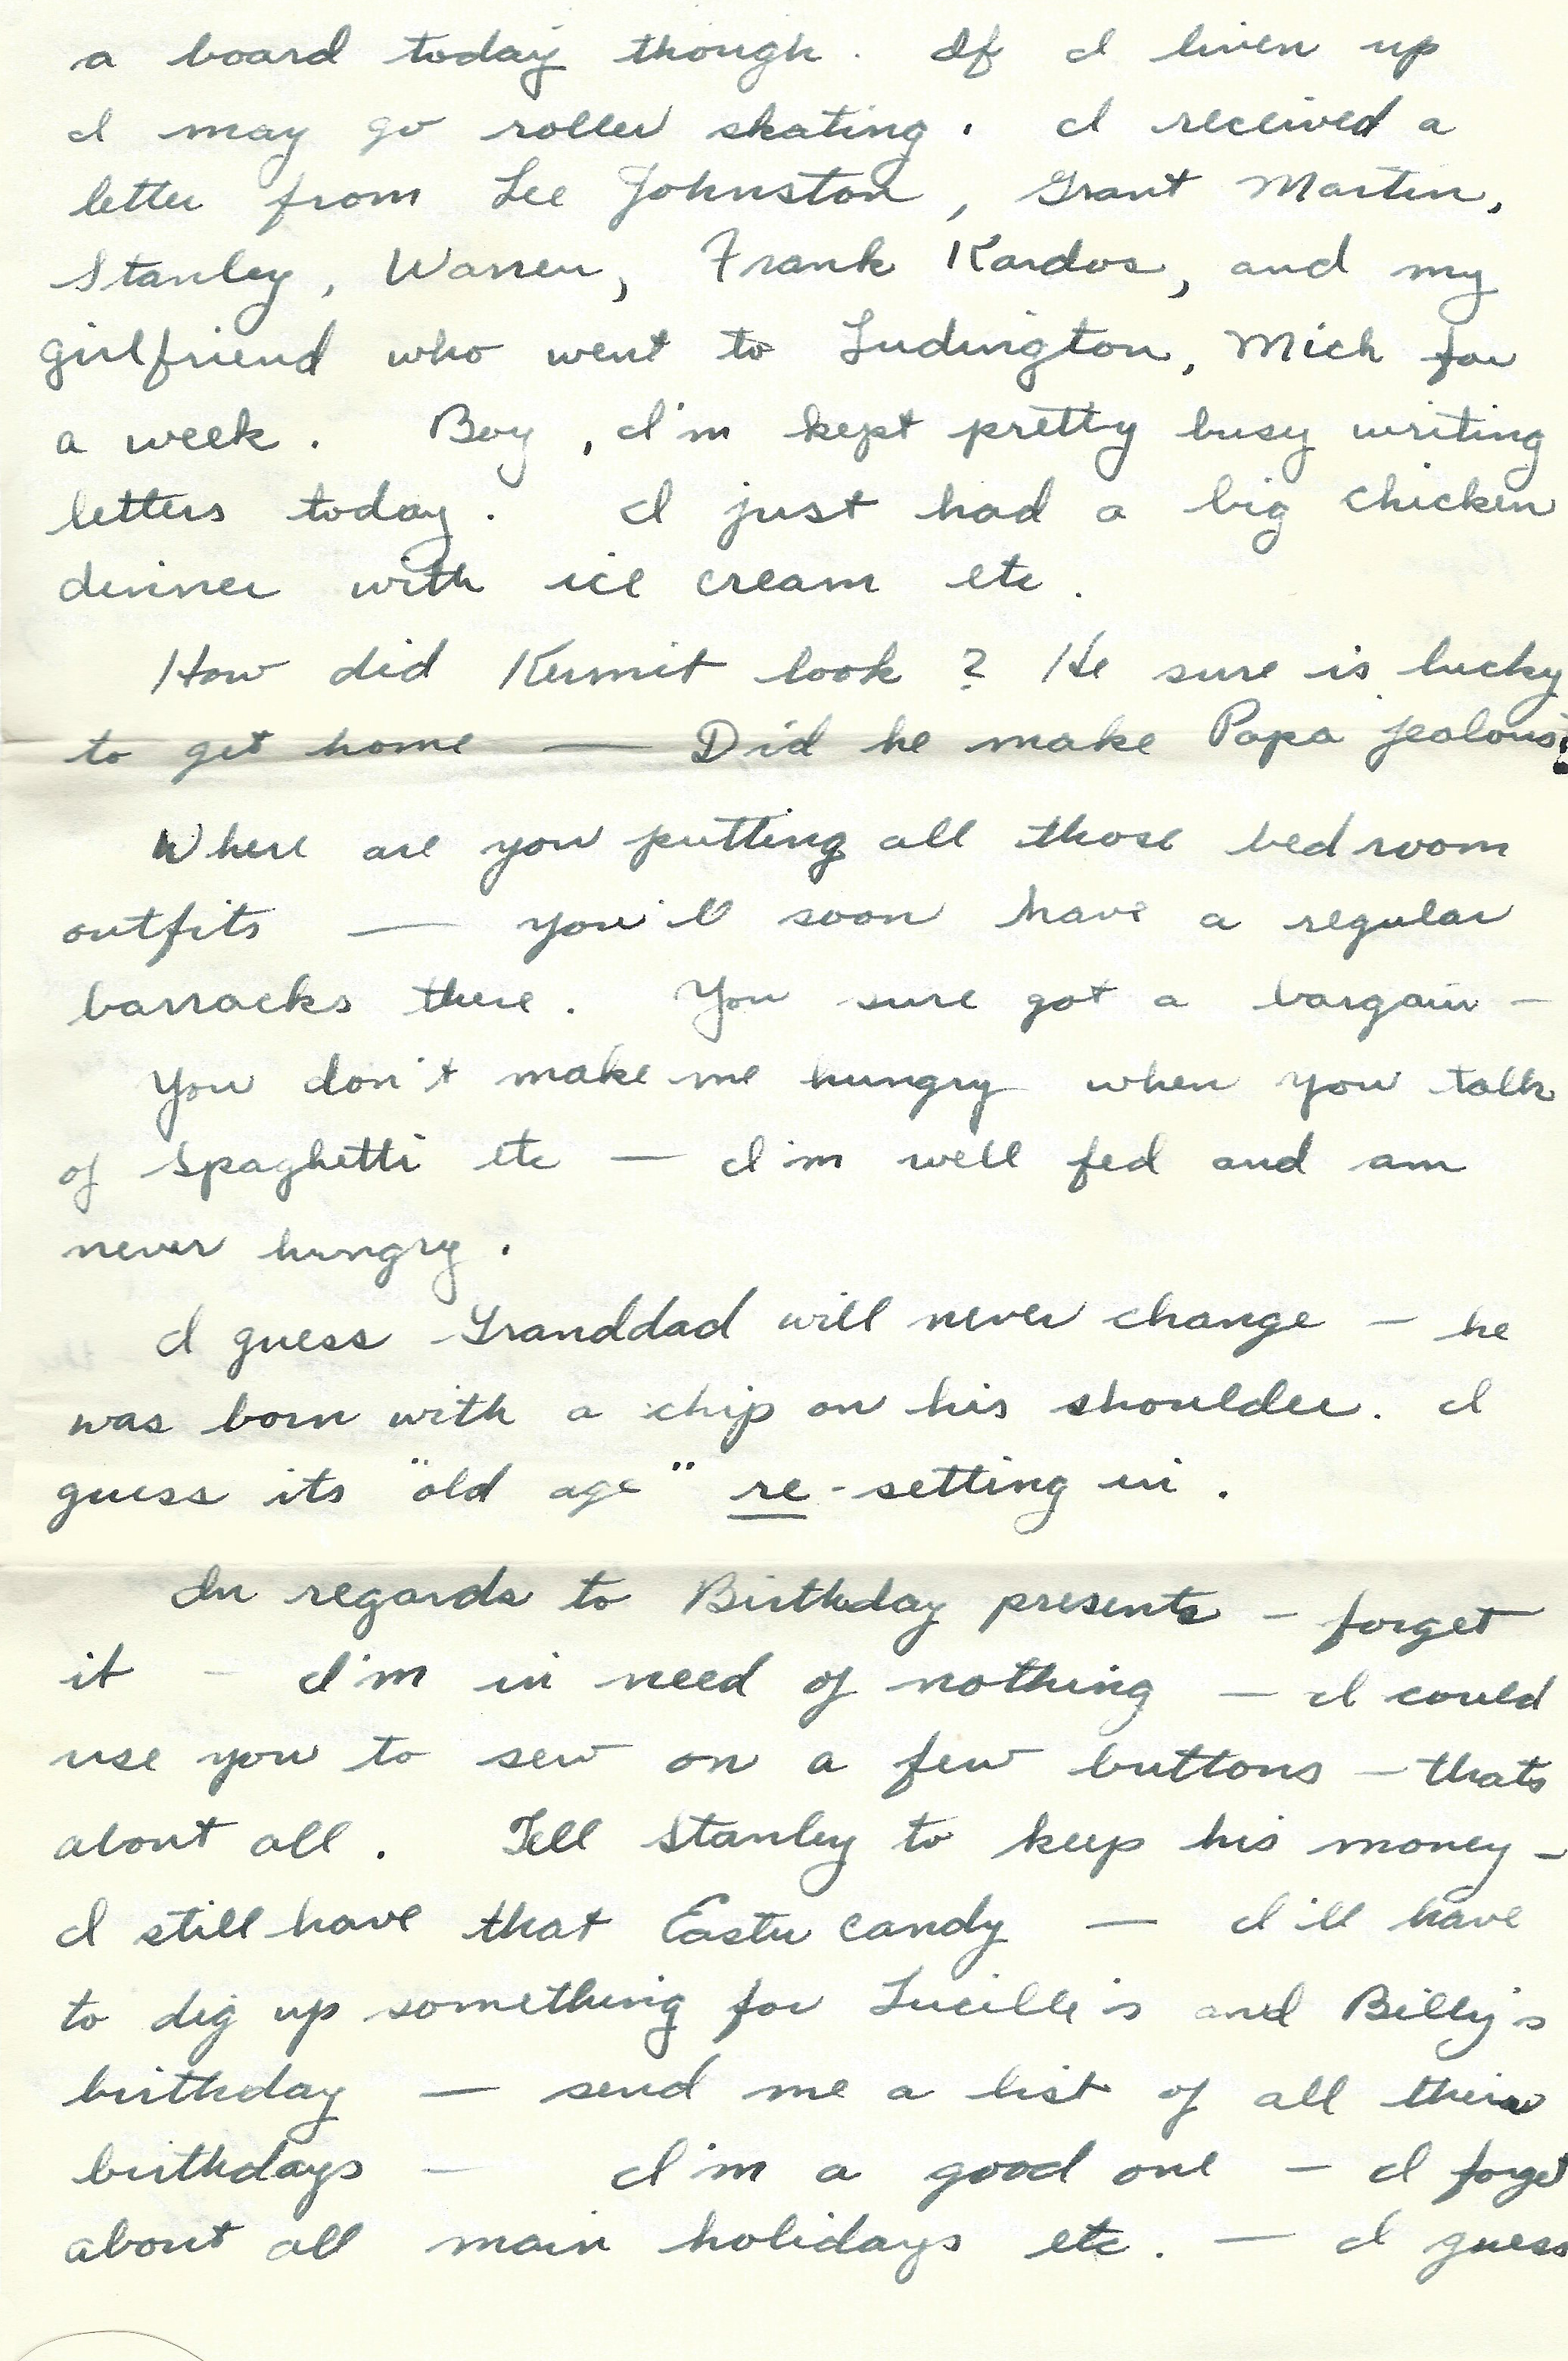 a board today though. If I liven up
I may go roller skating. I received a
letter from Lee Johnston, Grant Martin,
Stanley, Warren, Frank Kardos, and my
girlfriend who went to Ludington, Mich for
a week. Boy, I'm kept pretty busy writing
letters today. I just had a big chicken
dinner with ice cream etc.
How did Kermit look? He sure is lucky
to get home — Did he make Papa jealous?
Where are you putting all those bedroom
outfits — you'll soon have a regular
barracks there. You sure got a bargain -
You don't make me hungry when you talk
of spaghetti etc — I'm well fed and am
never hungry.
I guess Granddad will never change - he
was born with a chip on his shoulder. I
guess its "old age" re-setting in.
In regards to Birthday presents - forget
it - I'm in need of nothing — I could
use you to sew on a few buttons - thats
about all. Tell Stanley to keep his money -
I still have that Easter candy — I'll have
to dig up something for Lucille's and Billy's
birthday — send me a list of all their
birthdays - I'm a good one - I forget
about all main holidays etc. — I guess